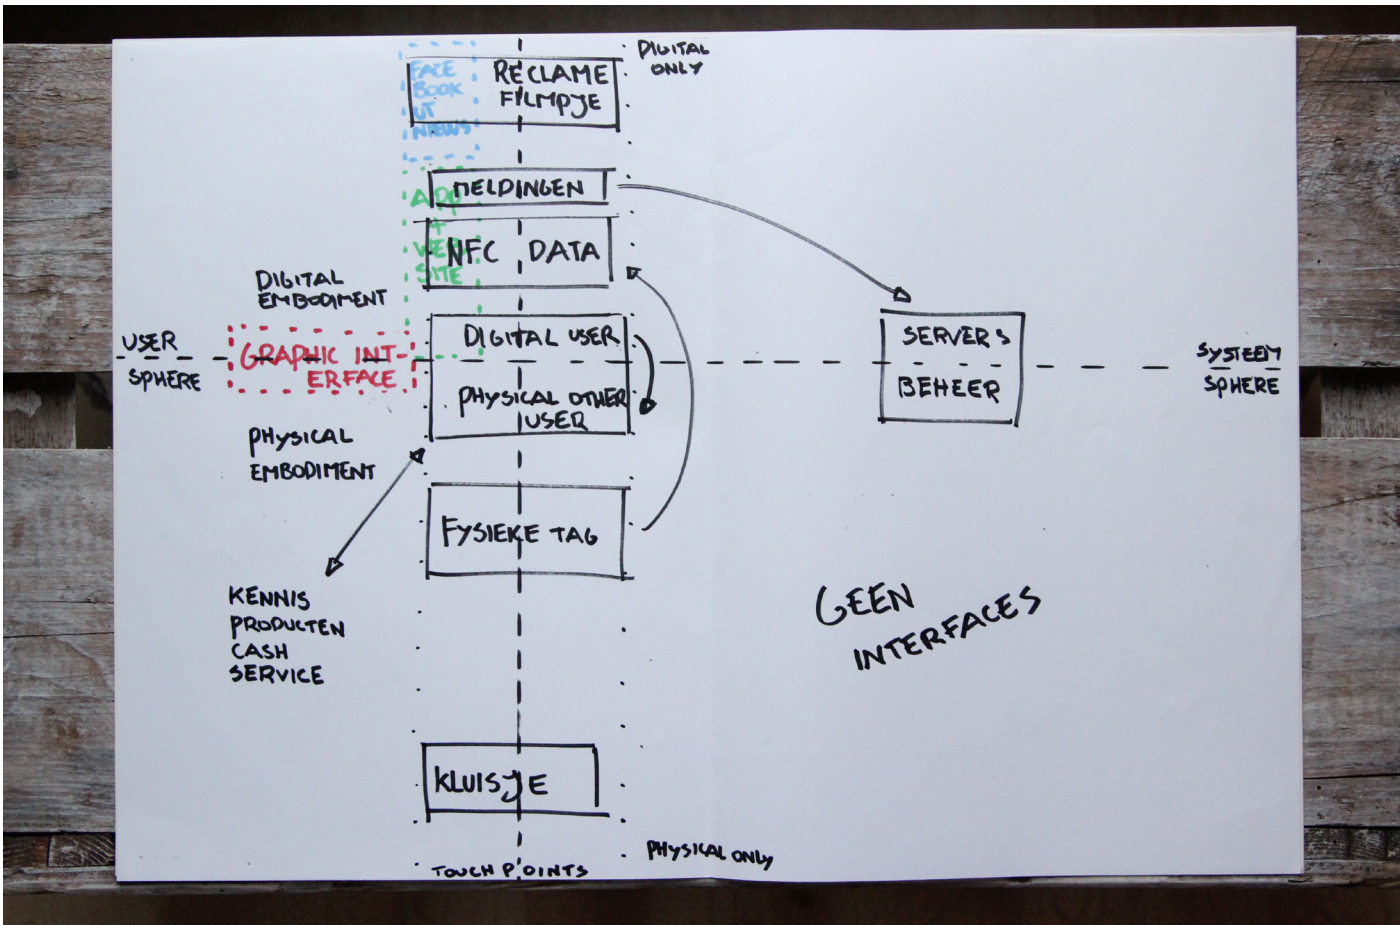 DIGITAL
ONLY
FACE
BOOK
UT
NIEWS
RECLAME
FILMPJE
MELDINGEN
APP
+
WEB
SITE
NFC DATA
DIGITAL
EMBODIMENT
USER
SPHERE
GRAPHIC INT-
ERFACE
DIGITAL USER
PHYSICAL OTHER
USER
SERVERS
BEHEER
SYSTEEM
SPHERE
PHYSICAL
EMBODIMENT
FYSIEKE TAG
KENNIS
PRODUCTEN
CASH
SERVICE
GEEN
INTERFACES
KLUISJE
PHYSICAL ONLY
TOUCH POINTS